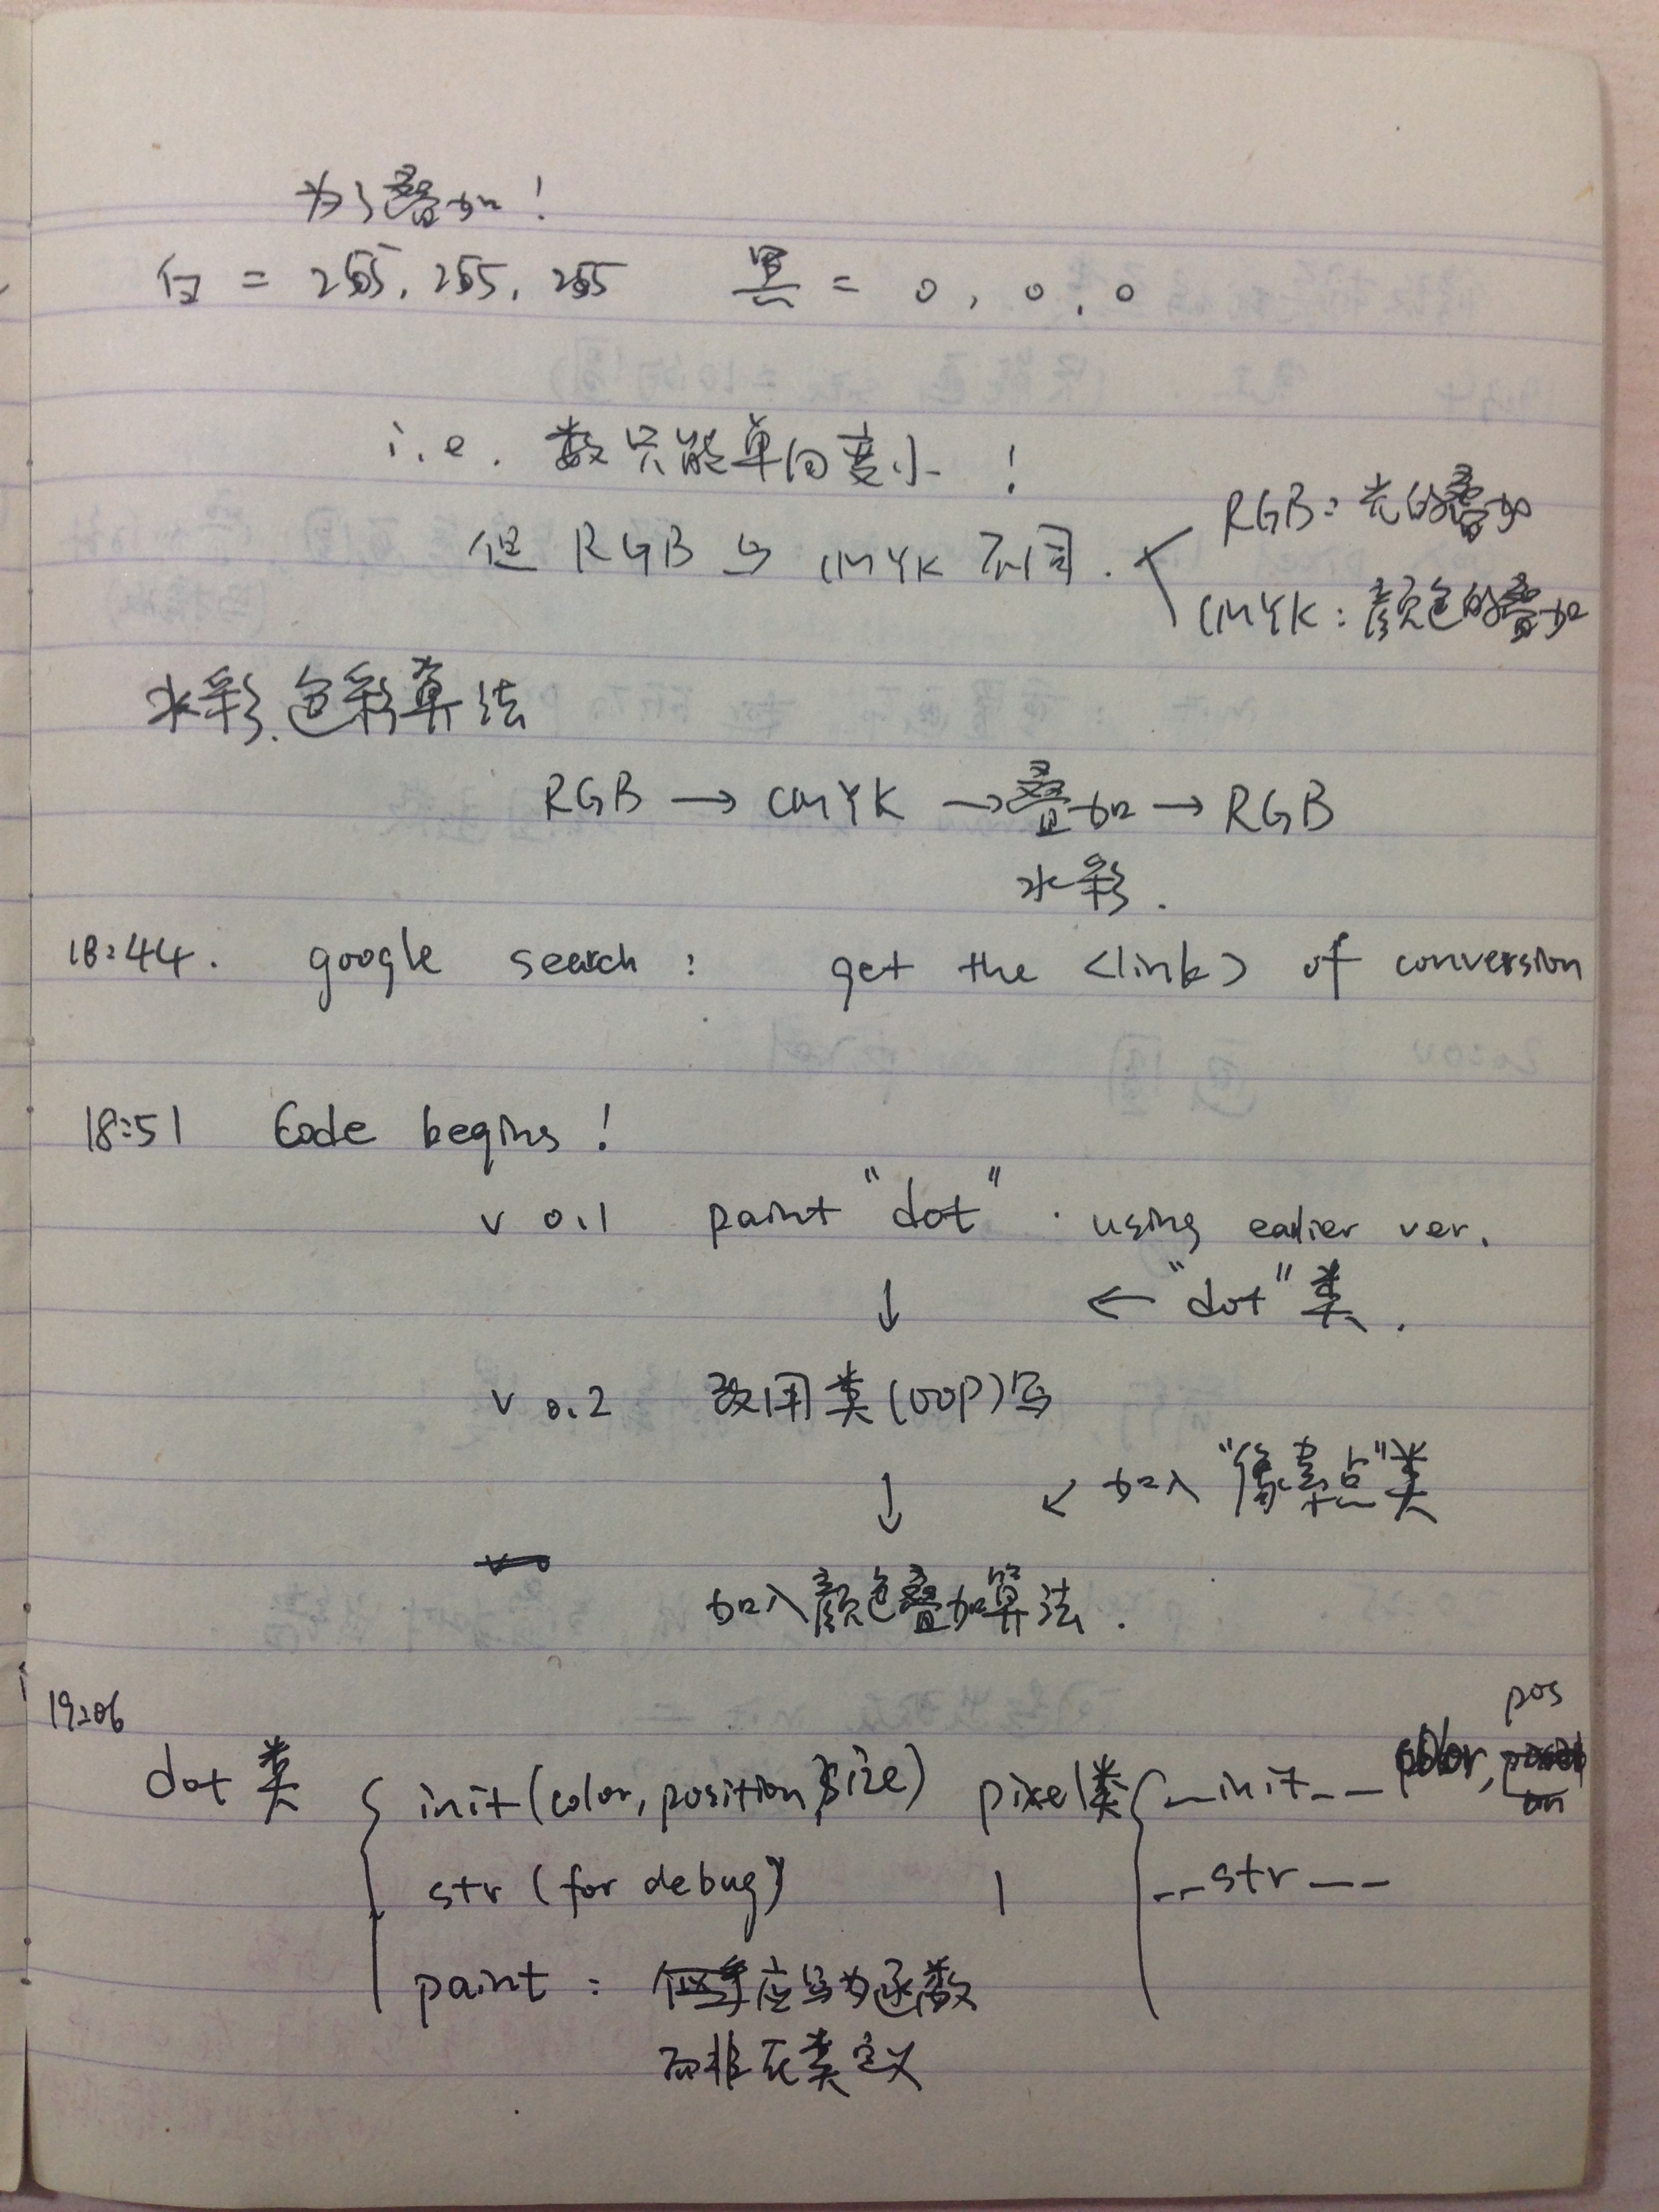 为了叠加！
白 = 255, 255, 255 黑 = 0, 0, 0
i.e. 数只能单向变小！
但 RGB 与 CMYK 不同.
RGB: 光的叠加
CMYK: 颜色的叠加
水彩.色彩算法
RGB → CMYK → 叠加 → RGB
水彩.
18:44. google search : get the <link> of conversion
18:51 Code begins !
v 0.1 paint "dot" . using ealier ver.
↓ ← "dot" 类.
v 0.2 改用类(OOP)写
↓ ↙ 加入 "像素点" 类
加入颜色叠加算法.
19:06
dot 类 { init (color, position, size) pixel类 { __init__ color, pos
str (for debug) __str__
paint : 应写为函数
而非在类定义